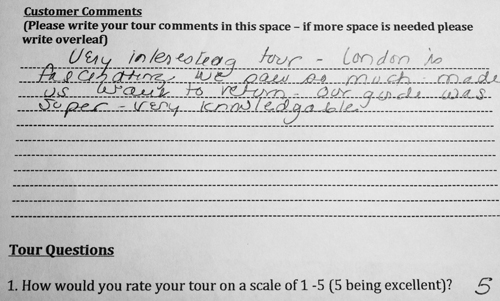 Customer Comments
(Please write your tour comments in this space – if more space is needed please
write overleaf)
Very interesting tour - London is
fascinating. We saw so much - made
us want to return - our guide was
super - very knowledgable.
Tour Questions
1. How would you rate your tour on a scale of 1 -5 (5 being excellent)? 5